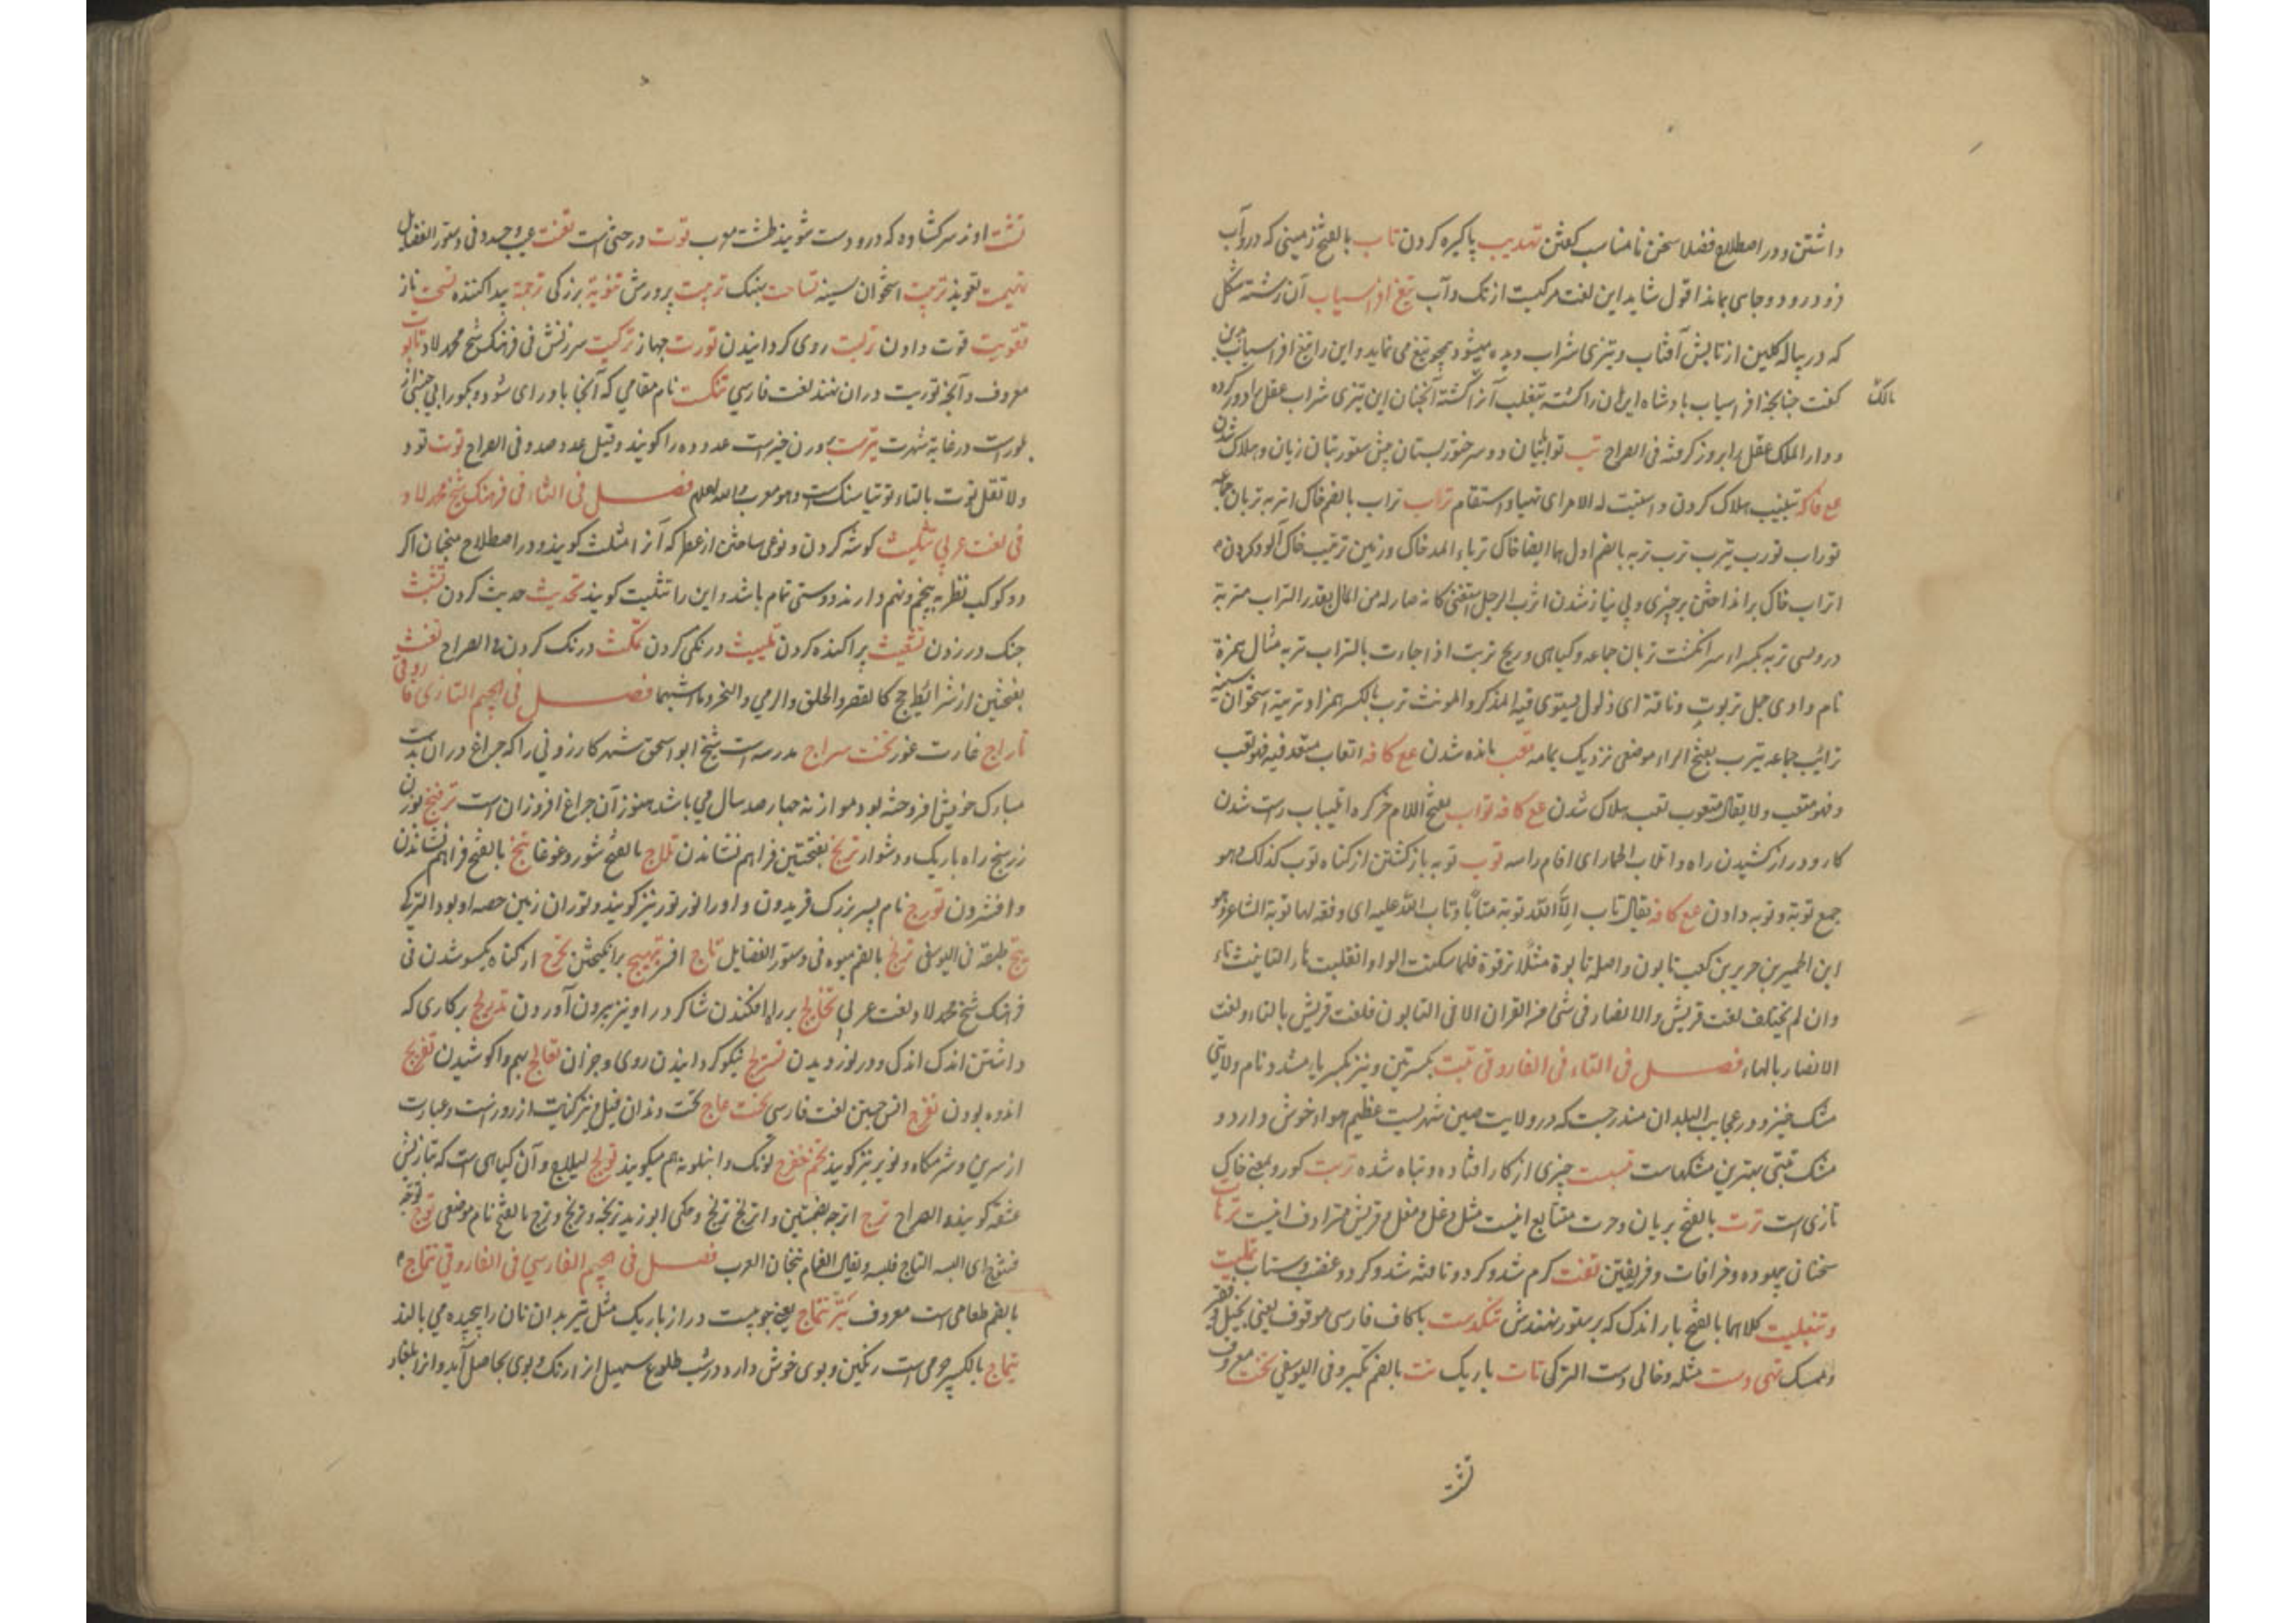 داشتن و در اصطلاح فضلا سخن نامناسب گفتن تهذیب پاکیزه کردن تاب بالفتح زمینی که در وآب
فرو درود و جای بماند اقول شاید این لغت مرکبست از تک و آب تیغ افراسیاب آن رشته شکل
که در پیاله کلین از تابش آفتاب و تیزی شراب دیده میشود همچو تیغ می نماید و این را تیغ افراسیاب
گفت چنانچه افراسیاب بادشاه ایران را کشته بتغلب آنرا گشته آنچنان این تیزی شراب عقل را دور کرده
مالک
و دار الملک عقل را بروز گرفته فی الصراح تب زیان و هلاک شدن
مع کافه تتبیب هلاک کردن و استتبت له الامر ای تهیأ و استقام تراب تراب بالضم خاک اتربه تربان جماعه
توراب تورب تیرب ترب تربه بالضم اول هما ایضا خاک ترباء بالمد خاک و زمین تتریب خاک آلود کردن
اتراب خاک بر انداختن بر چیزی و بی نیاز شدن اترب الرجل استغنی کانه صار له من المال بقدر التراب متربة
درویسی تربه بکسر راء سر انگشت تربان جماعه و گیاهی و ریح تربت اذا جاءت بالتراب تربه مثال همزة
نام وادی جمل تربوت و ناقة ای ذلول یستوی فیه المذکر و المونث ترب بالکسر همزاد تریبه استخوان سینه
ترائب جماعه یترب بفتح الراء موضعی نزدیک یمامه تعب مانده شدن مع کافه اتعاب متعد فیه فهو تعب
و فهو متعب و لا یقال متعوب تعب هلاک شدن مع کافه تولب بفتح اللام خرکره اتلیباب راست شدن
کار و دراز کشیدن راه و اتلاب الحمار ای اقام راسه توب توبه بازگشتن از گناه توب کذلک و هو
جمع توبة و توبه دادن مع کافه یقال تاب الی الله توبة متابا و تاب الله علیه ای وفقه لها توبة الشاعر و هو
ابن الحمیر بن حریر بن کعب تابوت و اصله تابوة مثل ترقوة فلما سکنت الواو انقلبت هاء التانیث تاء
و ان لم یختلف لغت قریش و الانصار فی شئ من القران الا فی التابوت فلغت قریش بالتاء و لغت
الانصار بالهاء فصل فی التاء فی الفاروقی تبت بکسرتین و نیز بکسر یاء مشدد نام ولایتی
مشک خیز و در عجایب البلدان مندرجست که در ولایت صین شهریست عظیم هواء خوش دارد و
مشک تبتی بهترین مشکهاست چیزی از کار افتاده و تباه شده تربت گور و بمعنی خاک
تازی است ترت بالفتح بریان و مرت متتابع
سخنان بیهوده و خرافات و فریفتن تفت گرم شد و کرد و تافته شد و کرد و غضب و شتاب
و تنبلیت کلاهما بالفتح بار اندک که بر ستور نهندش تنگدست باکاف فارسی موقوف یعنی بخیل و فقیر
و ممسک تهی دست مثله و خالی دست الترکی تات باریک تت بالضم فی الیوسفی تخت معروف
تشت
تشت اوند سر گشاده که درو دست شویند طشت معرب توت درختی است فی دستور الفضایل
تمیمت تعویذ تربت استخوان سینه تساحت تربیت پرورش برزگی پیداکننده ناز
تقویت قوت دادن روی گردانیدن توریت جهاز سرزنش فی فرهنگ شیخ محمد لاد تابوت
معروف و آنچه توریت دران نهند لغت فارسی تنکت نام مقامی که آنجا
در غایة شهرت عدد ده را گویند و قیل عدد صد و فی الصراح توت تود
و لا تقل توث بالثاء توتیا سنگ است و هو معرب و الله اعلم فصل فی الثاء فی فرهنگ شیخ محمد لاد
فی لغت عربی تثلیث گوشه کردن و نوعی ساختن از عطر که آنرا مثلث گویند و در اصطلاح منجمان اگر
دو کوکب نظر به پنجم و نهم دارند دوستی تمام باشد و این را تثلیث گویند تحدیث حدیث کردن تشبث
چنگ در زدن تشعیث پراکنده کردن تلبیث درنگی کردن تمکث درنگ کردن و الصراح تفث
بفتحتین از شرائط حج کالقصر و الحلق و الرمی و النحر و ما اشبهها فصل فی الجیم التازی فاروقی
تاراج غارت غور تخت سراج مدرسه است شیخ ابو اسحق شهر کازرونی را که چراغ دران بدست
مبارک خویش افروخته بود و مواز نه چهار صد سال می باشد هنوز آن چراغ افروزان است ترفنج بوزن
زرسنج راه باریک و دشوار ترنج بفتحتین فراهم نشاندن تلاج بالفتح شور و غوغا تنج بالفتح فراهم نشاندن
و افشردن تورج نام پسر بزرگ فریدون و اورا تور نیز گویند و توران زمین حصه او بود الترکی
طبقه فی الیوسفی ترنج بالضم میوه فی دستور الفضایل تاج افسر تهییج برانگیختن تحرج از گناه یکسو شدن فی
فرهنگ شیخ محمد لاد لغت عربی تخریج بیرون آوردن تدریج بر کاری که
داشتن اندک اندک و در نوردیدن نیکو گردانیدن روی و جز آن تعالج بهم واکوشیدن تفریج
اندوه بردن لغت فارسی تخت عاج تخت دندان فیل
از سرین و شرمگاه گویند تولج لبلاب و آن گیاهی است که بتازیش
عشقه گویند و الصراح ترج اترجه بضمتین و اترنج ترنج و حکی ابو زید ترنجه و ترنج و ترج بالفتح نام موضعی توج
فتتوج ای البسه التاج فلبسه و یقال العمائم تیجان العرب فصل فی الجیم الفارسی فی الفاروقی تتماج
بالضم طعامی است معروف تیر تتماج یعنی چوبیست دراز باریک مثل تیر بدان نان را پیچیده می بالند
تیماج بالکسر چرمی است رنگین و بوی خوش دارد در شب طلوع سهیل ازان رنگ و بوی حاصل آید و انرا بلغار